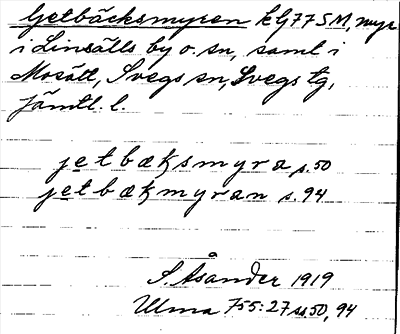 Getbäcksmyren k G77SM, myr
i Linsälls by o. sn, samt i
Mosätt, Svegs sn, Svegs tg,
Jämtl. l.
jetbæksmyra s. 50
jetbækmyran s. 94
S. Åsander 1919
Ulma 755:27 ss. 50, 94